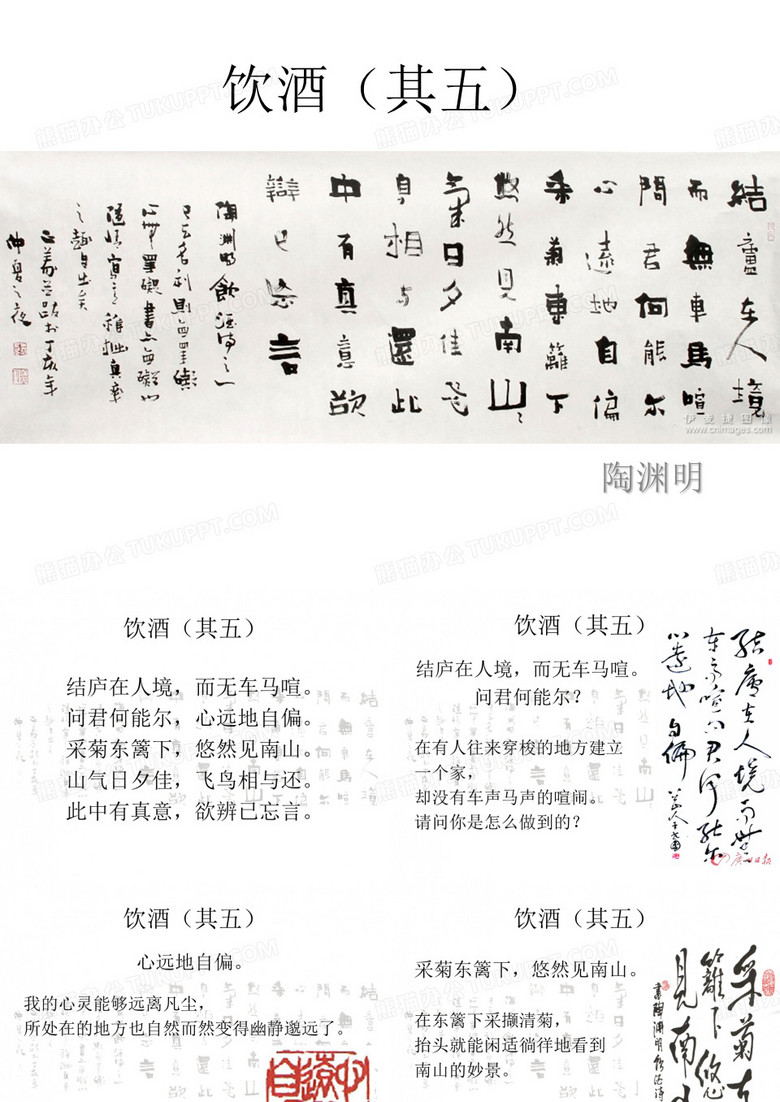 饮酒（其五）
結廬在人境
而無車馬喧
問君何能尔
心遠地自偏
采菊東籬下
悠然見南山
氣日夕佳飛
鳥相与還此
中有真意欲
辯已忘言
陶渊明飲酒詩之一
伊麦捷图像
www.cnimages.com
陶渊明
饮酒（其五）
结庐在人境，而无车马喧。
问君何能尔，心远地自偏。
采菊东篱下，悠然见南山。
山气日夕佳，飞鸟相与还。
此中有真意，欲辨已忘言。
饮酒（其五）
结庐在人境，而无车马喧。
问君何能尔？
在有人往来穿梭的地方建立
一个家，
却没有车声马声的喧闹。
请问你是怎么做到的？
结庐在人境而無
车马喧问君何能尔
心遠地自偏
广州日报
饮酒（其五）
心远地自偏。
我的心灵能够远离凡尘，
所处在的地方也自然而然变得幽静邈远了。
饮酒（其五）
采菊东篱下，悠然见南山。
在东篱下采撷清菊，
抬头就能闲适徜徉地看到
南山的妙景。
采菊东
籬下悠
見南山
熊猫办公 TUKUPPT.COM